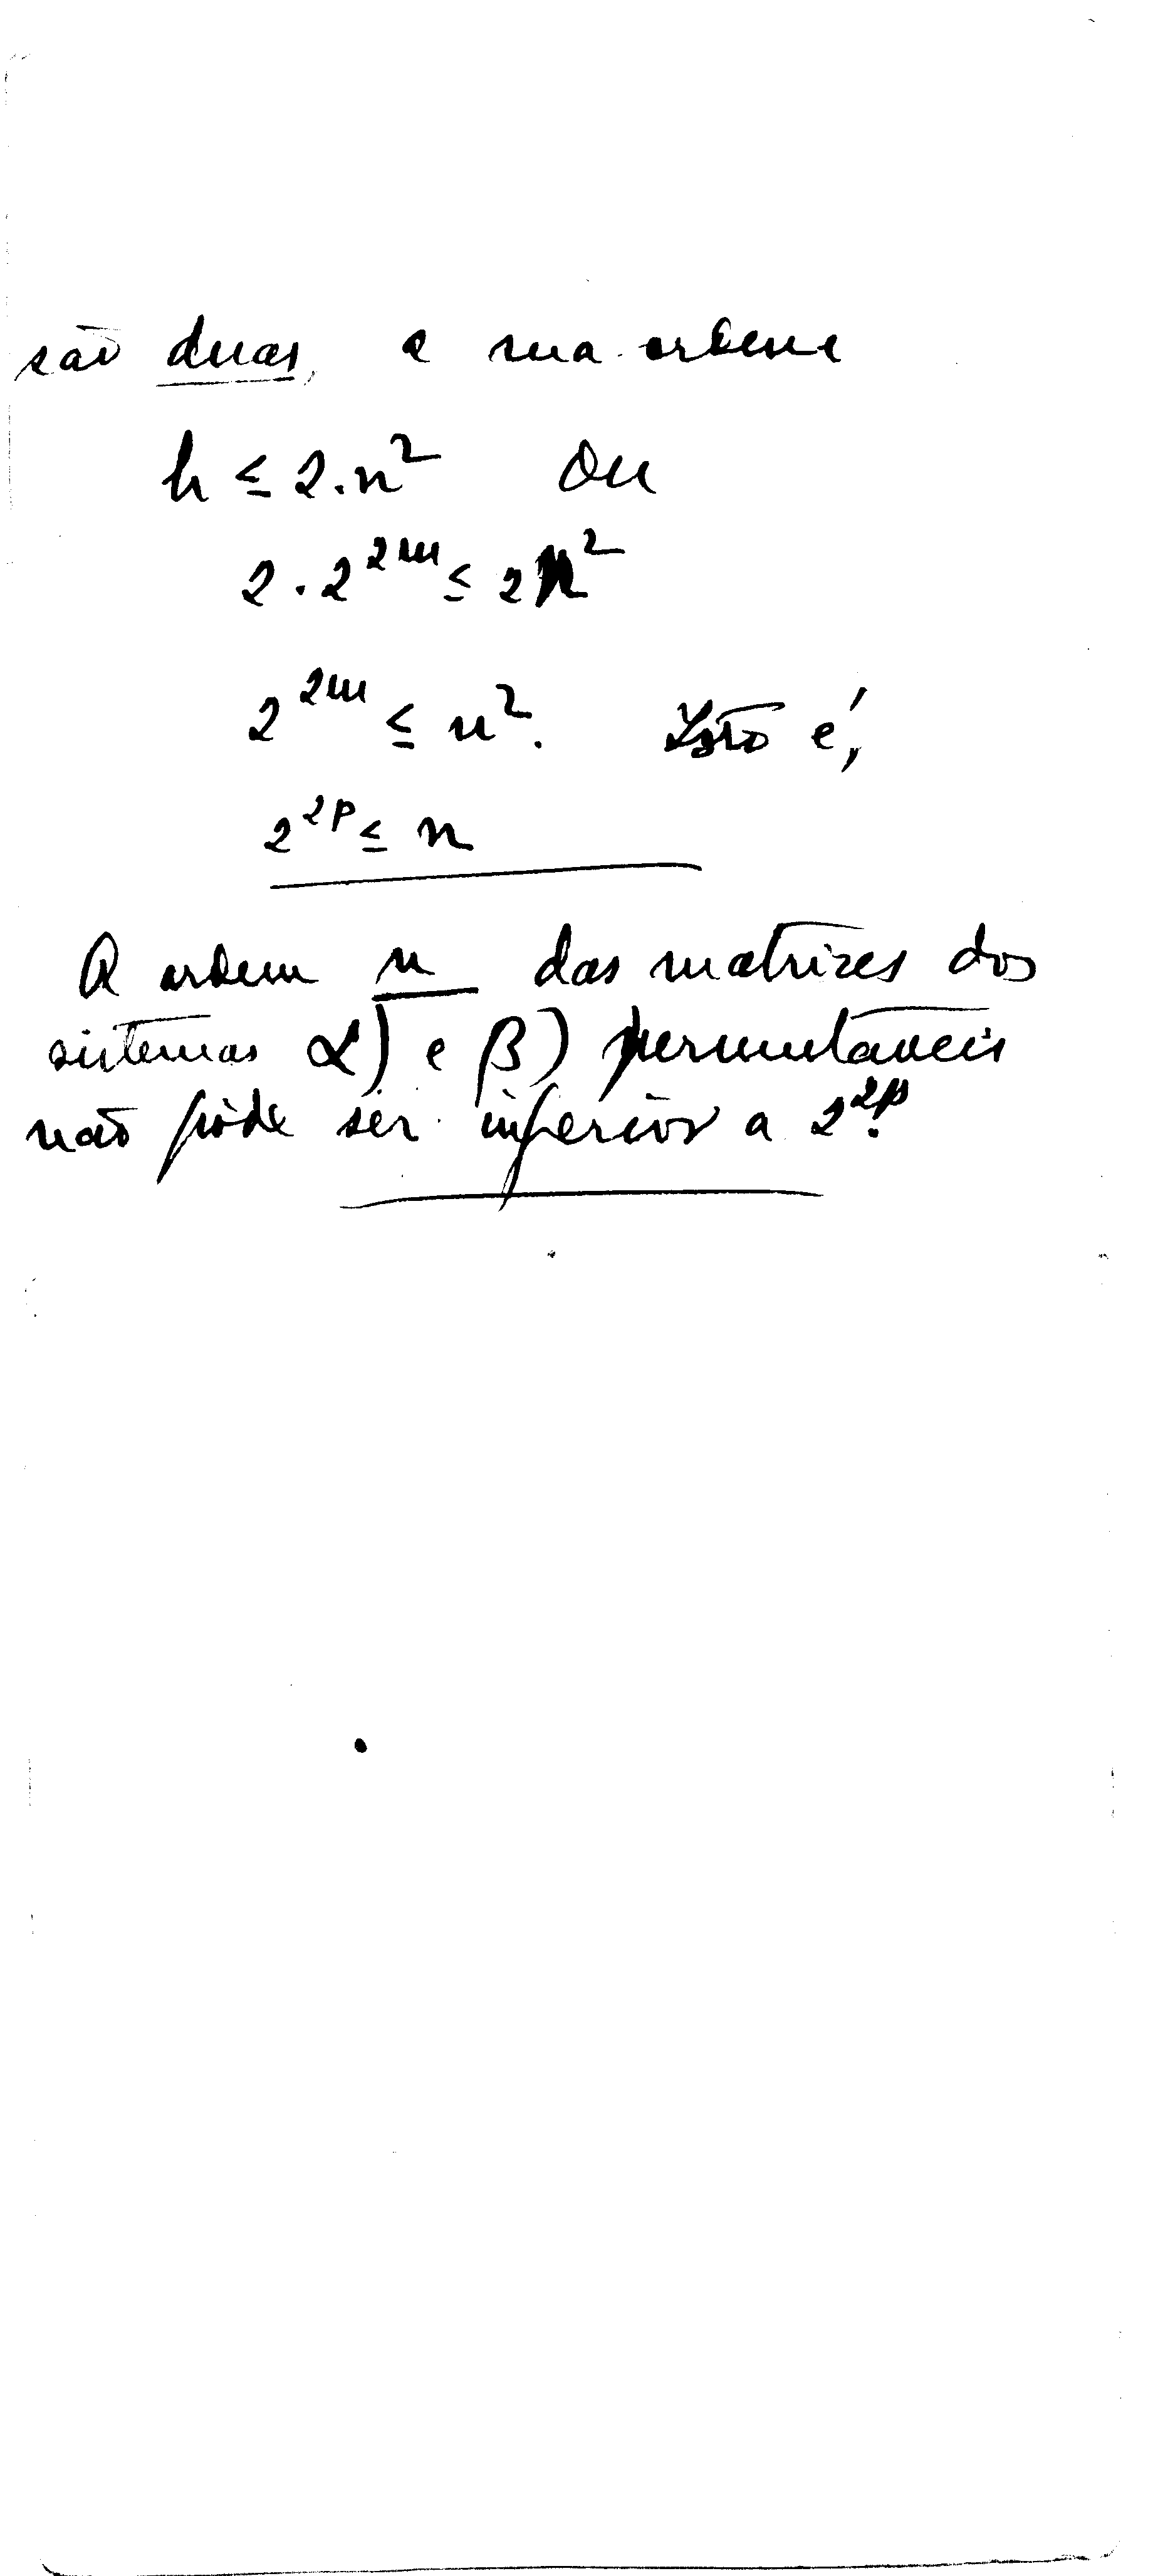 são duas, e sua ordem
h ≤ 2.n² ou
2 . 2^{2m} ≤ 2n²
2^{2m} ≤ n². Isto é,
2^{2p} ≤ n
A ordem n das matrizes dos
sistemas α) e β) permutáveis
não póde ser inferior a 2^{2p}.